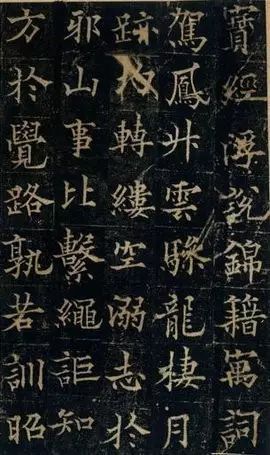 寶經浮說錦籍萬詞
駕鳳升雲驂龍棲月
跡轉縷空溺志於
邪山事比繫繩詎知
方於覺路孰若訓昭